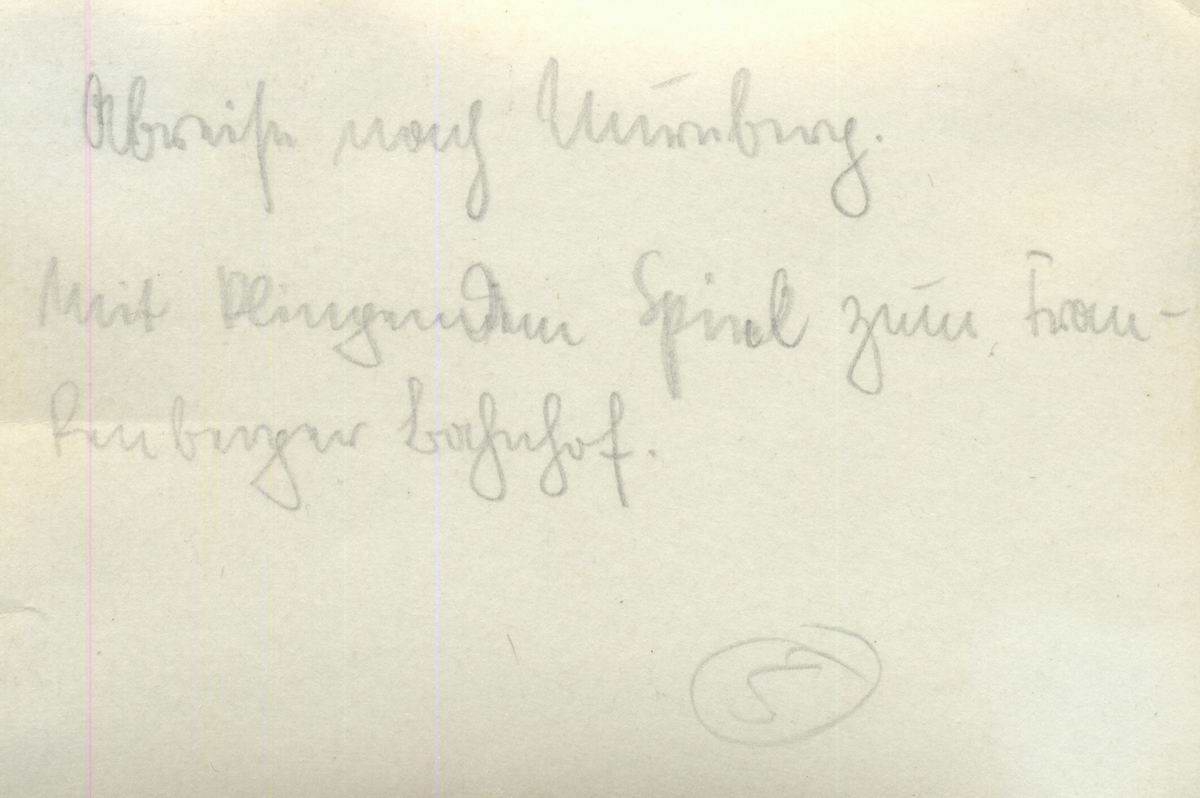 Abreise nach Nürnberg.
Mit klingendem Spiel zum Fran-
kenberger Bahnhof.
5